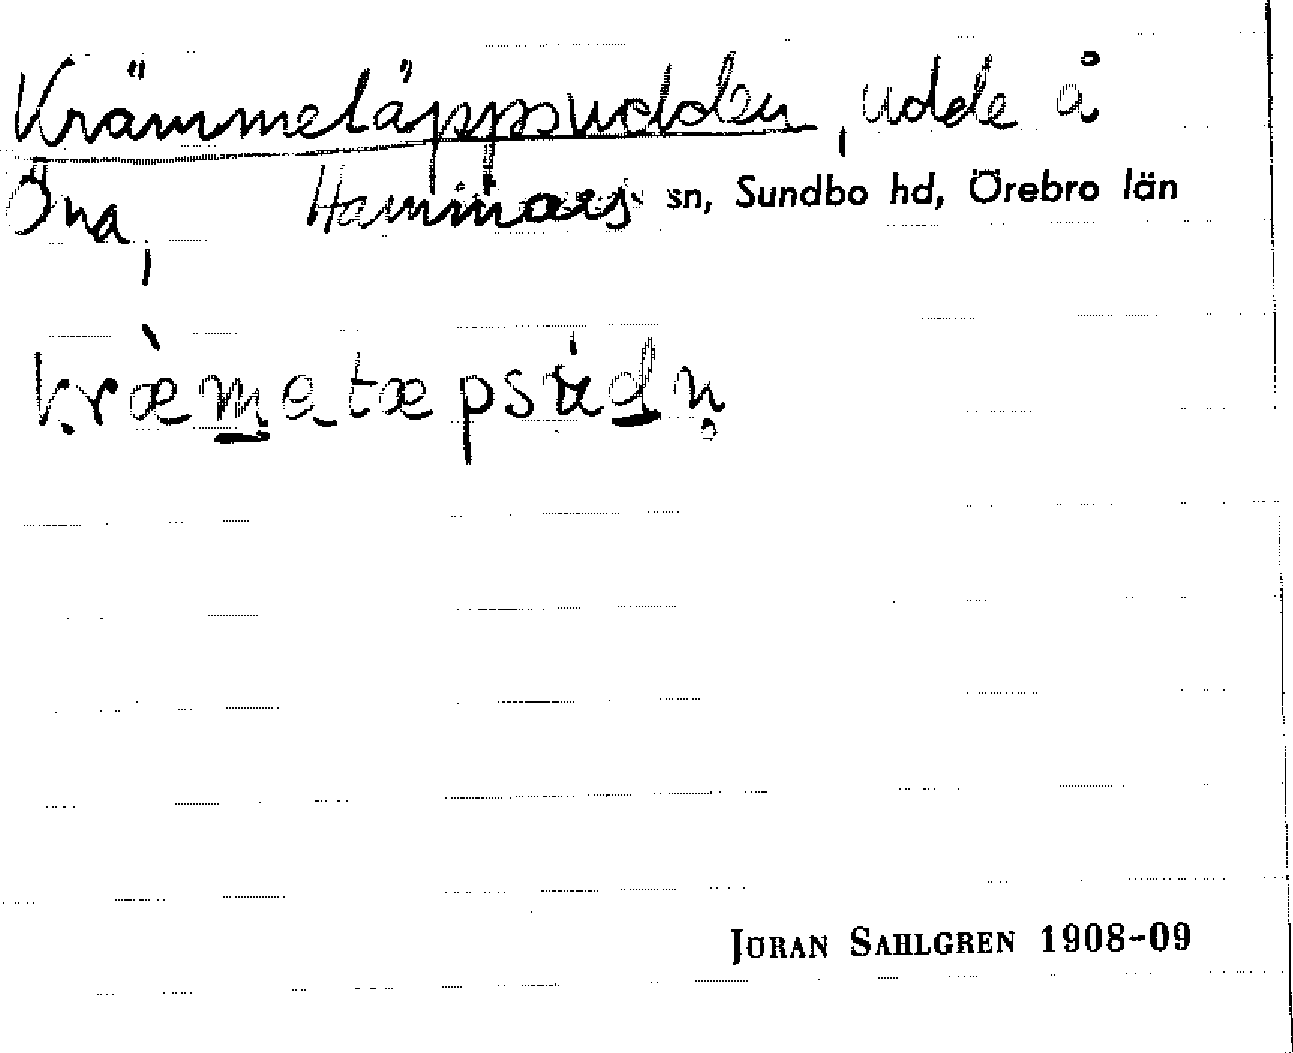 Krämmetäppsudden, udde å
Öna, Hammars sn, Sundbo hd, Örebro län
kræ̀mətæpsùdn̥
JÖRAN SAHLGREN 1908-09